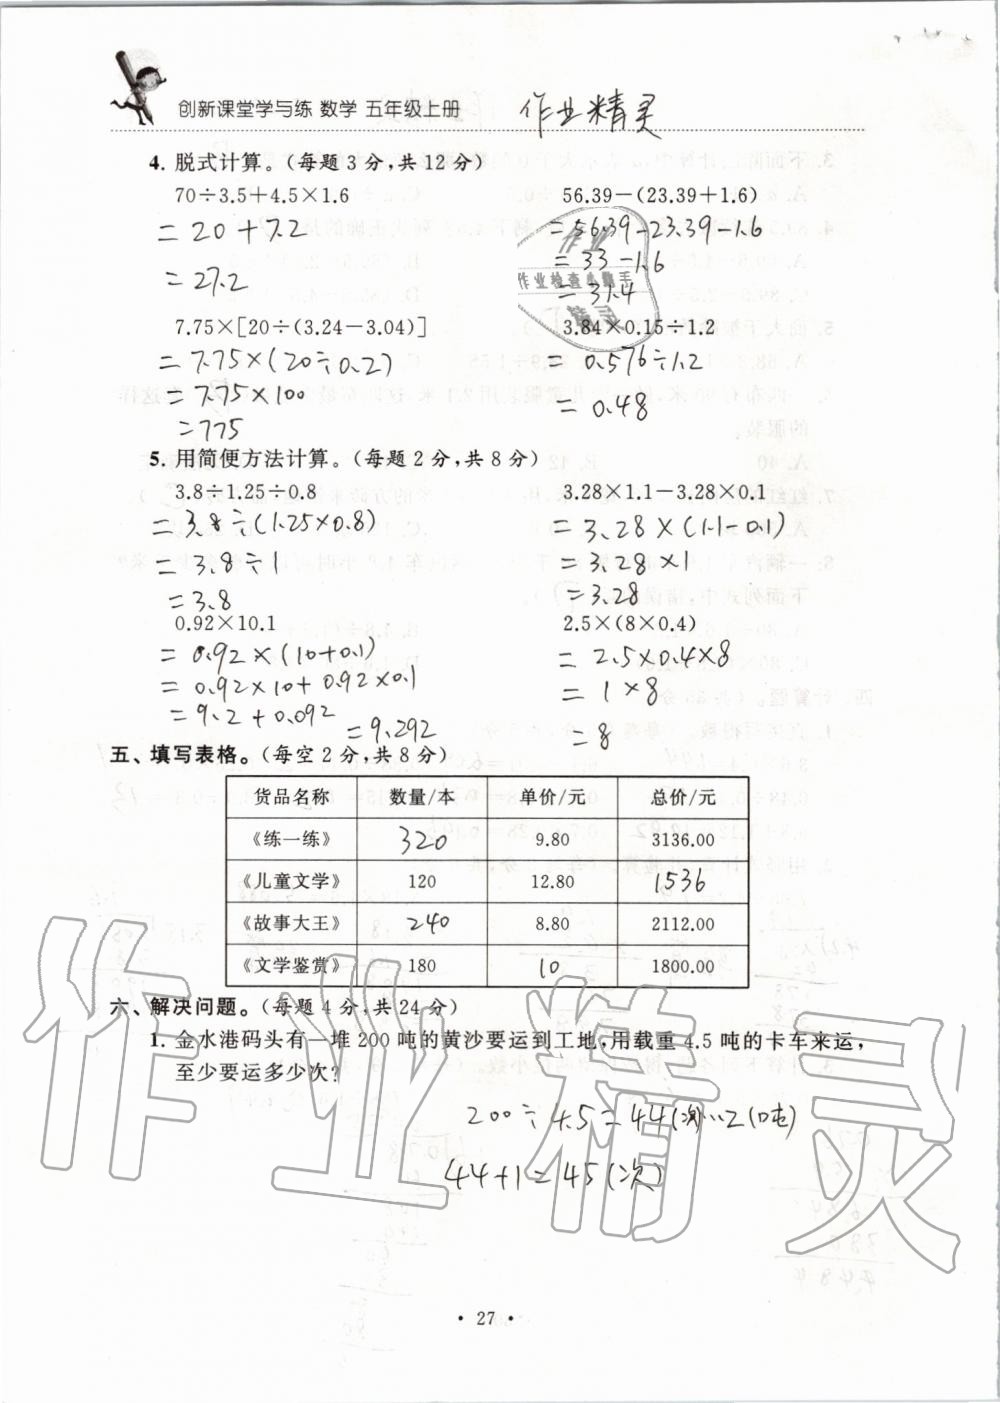 创新课堂学与练 数学 五年级上册 作业精灵
4. 脱式计算。（每题 3 分，共 12 分）
70÷3.5+4.5×1.6 56.39－(23.39+1.6)
= 20 + 7.2 = 56.39 - 23.39 - 1.6
= 27.2 = 33 - 1.6
= 31.4
作业
作业检查小助手
精灵
7.75×[20÷(3.24－3.04)] 3.84×0.15÷1.2
= 7.75×(20÷0.2) = 0.576÷1.2
= 7.75×100 = 0.48
= 775
5. 用简便方法计算。（每题 2 分，共 8 分）
3.8÷1.25÷0.8 3.28×1.1－3.28×0.1
= 3.8÷(1.25×0.8) = 3.28×(1.1-0.1)
= 3.8÷1 = 3.28×1
= 3.8 = 3.28
0.92×10.1 2.5×(8×0.4)
= 0.92×(10+0.1) = 2.5×0.4×8
= 0.92×10+0.92×0.1 = 1×8
= 9.2+0.092 = 9.292 = 8
五、填写表格。（每空 2 分，共 8 分）
货品名称 数量/本 单价/元 总价/元
《练一练》 320 9.80 3136.00
《儿童文学》 120 12.80 1536
《故事大王》 240 8.80 2112.00
《文学鉴赏》 180 10 1800.00
六、解决问题。（每题 4 分，共 24 分）
1. 金水港码头有一堆 200 吨的黄沙要运到工地，用载重 4.5 吨的卡车来运，
至少要运多少次？
200÷4.5=44(次)……2(吨)
44+1=45(次)
作业精灵
• 27 •